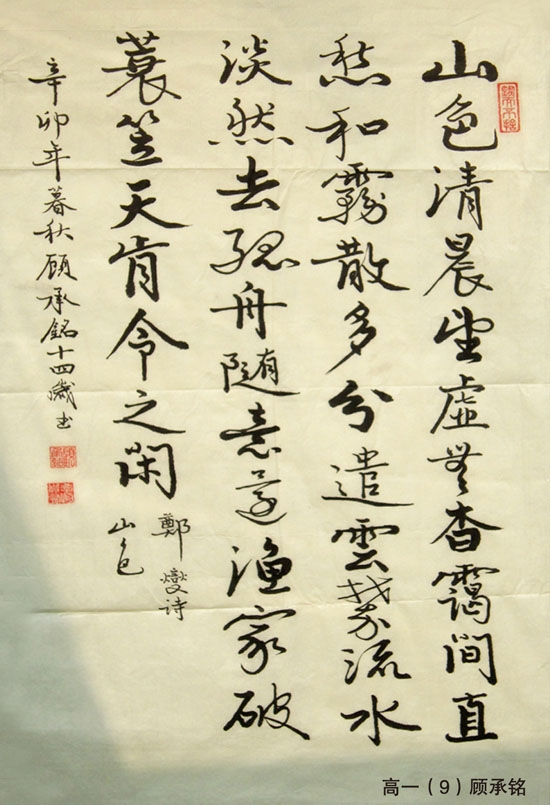 山色清晨望虚無杳靄间直
愁和霧散多分遣雲攀流水
淡然去孤舟随意還渔家破
蓑笠天肯令之闲
鄭燮诗
山色
辛卯年暮秋顾承銘十四歲书
高一（9）顾承铭